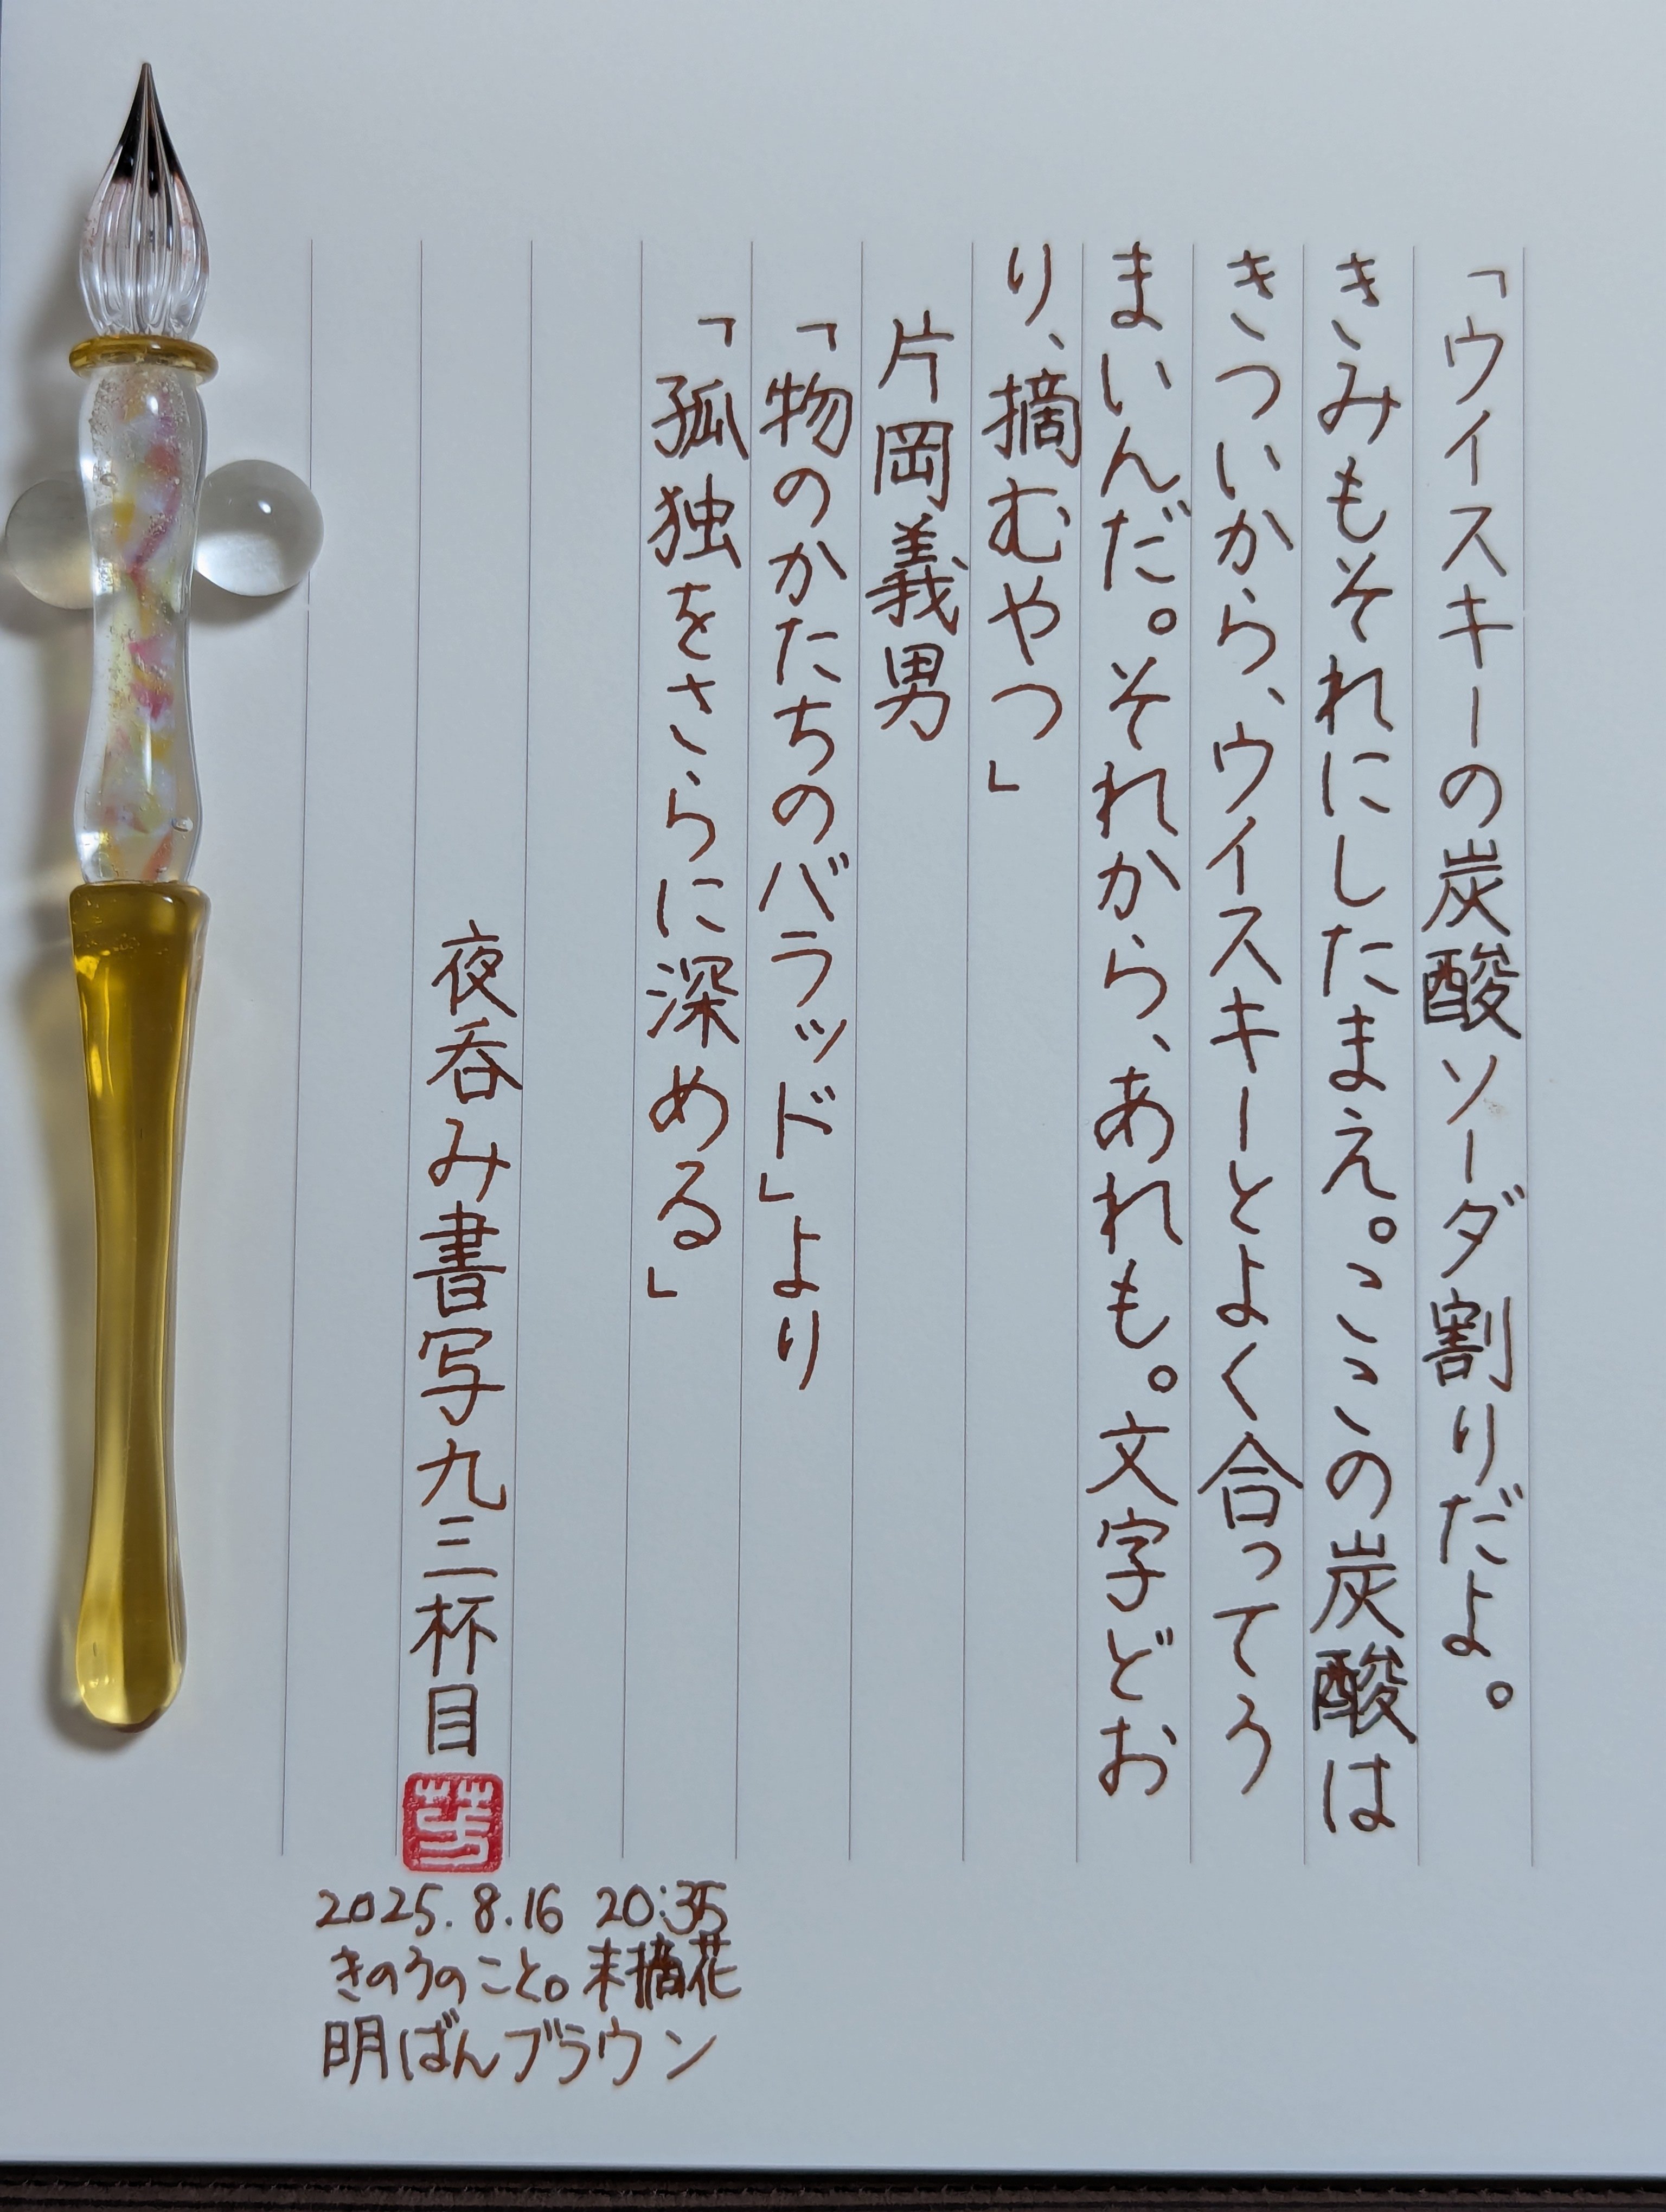 「ウイスキーの炭酸ソーダ割りだよ。
きみもそれにしたまえ。ここの炭酸は
きついから、ウイスキーとよく合ってう
まいんだ。それから、あれも。文字どお
り、摘むやつ」
片岡義男
「物のかたちのバラッド」より
「孤独をさらに深める」
夜呑み書写九三杯目
2025.8.16 20:35
きのうのこと。末摘花
明ばんブラウン